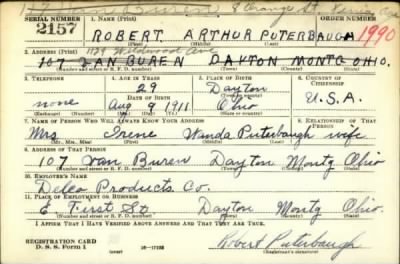 8 Orange St.
SERIAL NUMBER 1. NAME (Print) ORDER NUMBER (Print)
2157 ROBERT ARTHUR PUTERBAUGH 1990
(First) (Middle) (Last)
2. ADDRESS (Print) 1129 Wildwood Ave
107 VAN BUREN DAYTON MONTG OHIO.
(Number and street or R. F. D. number) (Town) (County) (State)
3. TELEPHONE 4. AGE IN YEARS 5. PLACE OF BIRTH 6. COUNTRY OF CITIZENSHIP
29 Dayton
DATE OF BIRTH (Town or county)
none Aug 9 1911 Ohio U.S.A.
(Exchange) (Number) (Mo.) (Day) (Yr.) (State or country)
7. NAME OF PERSON WHO WILL ALWAYS KNOW YOUR ADDRESS RELATIONSHIP OF THAT PERSON
Mrs Irene Wanda Puterbaugh wife
(Mr., Mrs., Miss) (First) (Middle) (Last)
8. ADDRESS OF THAT PERSON
107 Van Buren Dayton Montg Ohio
(Number and street or R. F. D. number) (Town) (County) (State)
10. EMPLOYER'S NAME
Delco Products Co.
11. PLACE OF EMPLOYMENT OR BUSINESS
E. First St Dayton Montg Ohio.
(Number and street or R. F. D. number) (Town) (County) (State)
I AFFIRM THAT I HAVE VERIFIED ABOVE ANSWERS AND THAT THEY ARE TRUE.
REGISTRATION CARD
D. S. S. Form 1 (over) Robert Puterbaugh